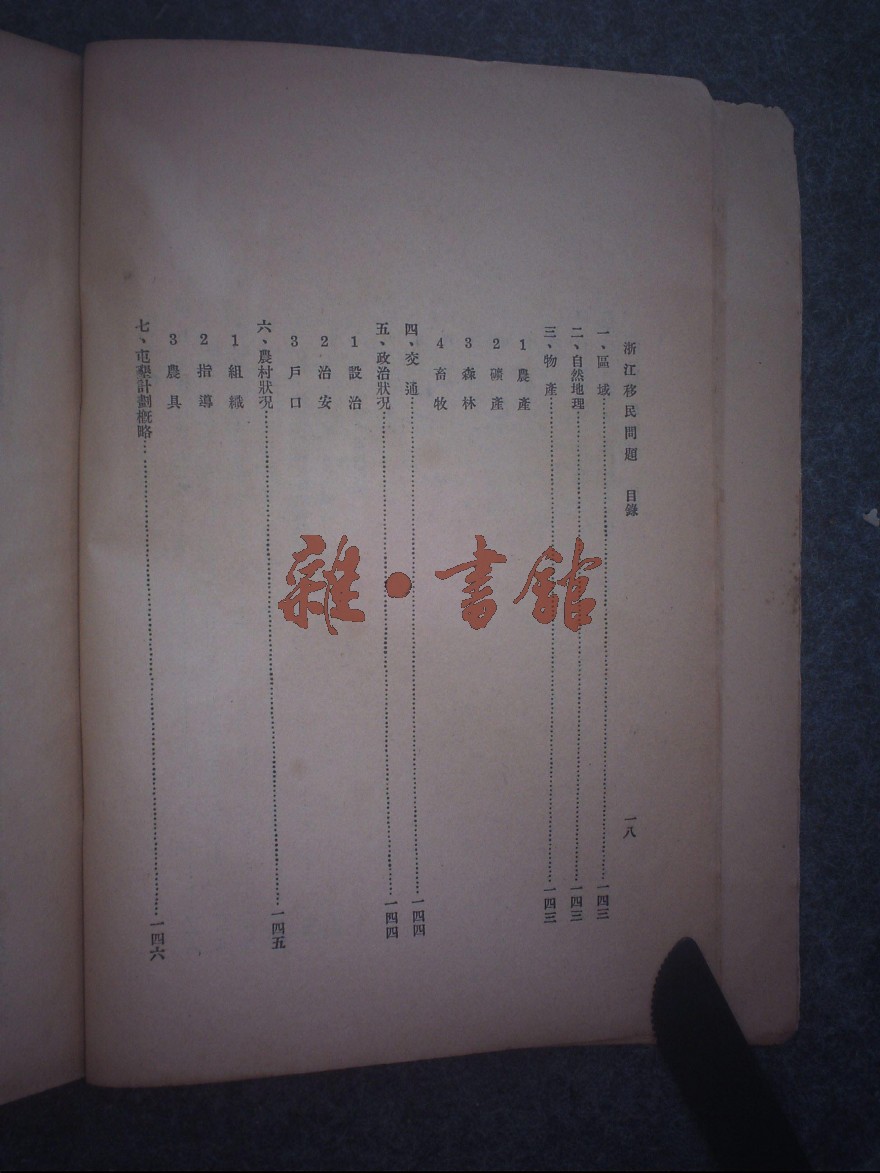 浙江移民問題 目錄 一八
一、區域……一四三
二、自然地理……一四三
三、物產……一四三
1 農產
2 礦產
3 森林
4 畜牧
四、交通……一四四
五、政治狀况……一四四
1 設治
2 治安
3 戶口
六、農村狀况……一四五
1 組織
2 指導
3 農具
七、屯墾計劃概略……一四六
雜·書館